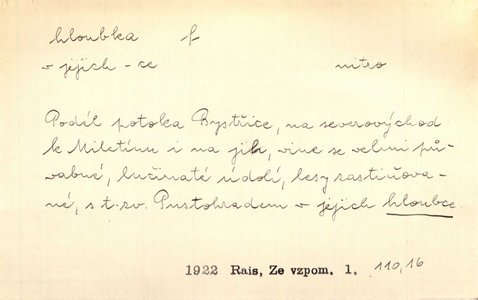 hloubka f
v jejich - ce nitro
Podél potoka Bystřice, na severovýchod
k Miletínu i na jih, vine se velmi pů-
vabné, lučinaté údolí, lesy zastiňova-
né, s t. zv. Pustohradem v jejich hloubce.
1922 Rais, Ze vzpom. 1. 110,16